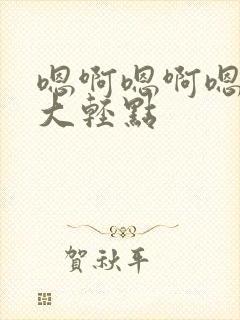 嗯啊嗯啊嗯
大輕點
賀秋平